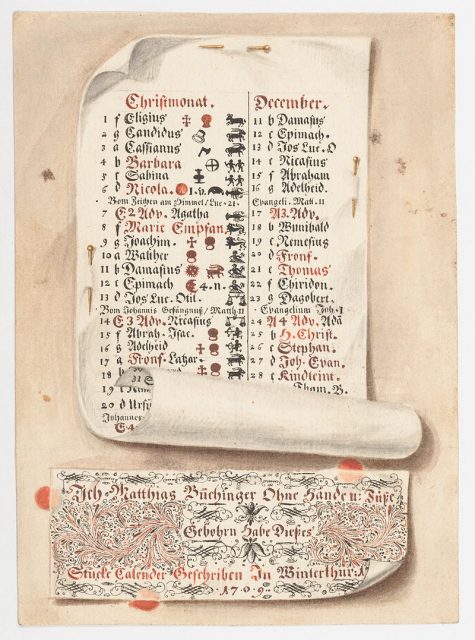 Christmonat.
1 f Eligius
2 g Candidus
3 a Cassianus
4 b Barbara
5 c Sabina
6 d Nicola. 1. v.
Vom Zeichen am Himmel/Luc. 21.
7 E 2 Adv. Agatha
8 f Marie Empfan.
9 g Joachim.
10 a Walther
11 b Damasus
12 c Epimach 4. n.
13 d Jos Luc. Otil.
Vom Johannis Gefängnuß/Matth 11
14 E 3 Adv. Nicasius
15 f Abrah. Isac.
16 g Adelheid
17 a Fronf. Lazar.
18 b
31 E
19
20 d Ursi
Johannes
E 4
December.
11 b Damasus
12 c Epimach.
13 d Jos Luc. O
14 e Nicasius
15 f Abraham
16 g Adelheid.
Evangeli. Matt. 11
17 A 3. Adv.
18 b Wunibald
19 c Nemesius
20 d Fronf.
21 e Thomas
22 f Chiridon.
23 g Dagobert.
Evangelium Joh. 1
24 A 4 Adv. Ada
25 b H. Christ.
26 c Stephan.
27 d Joh. Evan.
28 e Kindlein.
Tham. B.
Ich Matthias Büchinger Ohne Hände u: Füße
Gebohrn Habe Dießes
Stücke Calender Geschriben In Winterthur:
1709